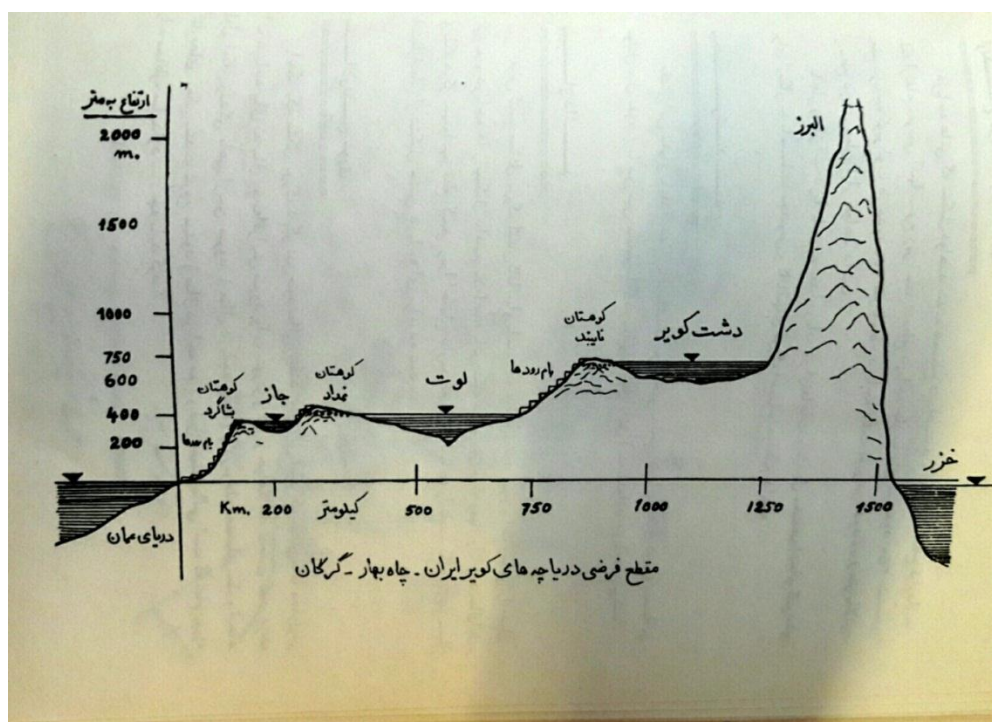 ارتفاع به متر
2000
m.
1500
1000
750
600
400
200
البرز
دشت کویر
کوهستان
نایبند
بام رودها
لوت
کوهستان
نمداد
جاز
کوهستان
بشاگرد
خزر
دریای عمان
Km. 200 کیلومتر 500 750 1000 1250 1500
مقطع فرضی دریاچه های کویر ایران - چاه بهار - گرگان